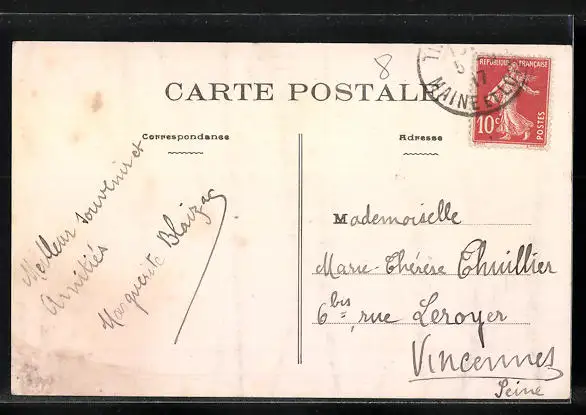 8
CARTE POSTALE
MAINE ET
RÉPUBLIQUE FRANÇAISE
10c
POSTES
Correspondance
Adresse
Meilleur souvenir et
Amitiés
Marguerite
Mademoiselle
Marie-Thérèse Thuillier
6 bis rue Leroyer
Vincennes
Seine